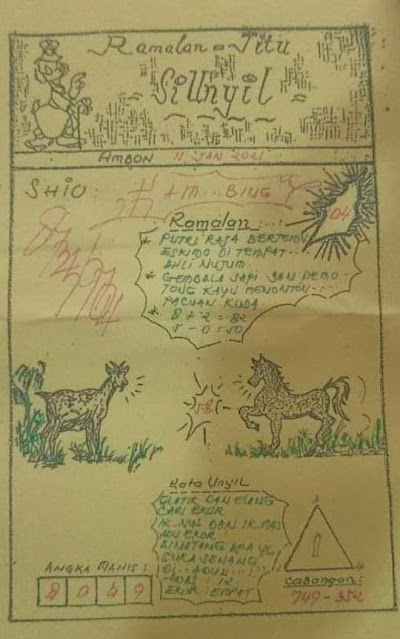 Ramalan = Jitu
Si Unyil
AMBON 11 JAN 2021
SHIO: KAM...BING
04
Ramalan:
* PUTRI RAJA BERTEMU
ESKIMO DI TEMPAT
AHLI NUJUM
* GEMBALA SAPI DAN PEMO-
TONG KAYU MENONTON
PACUAN KUDA
* 8 + 2 = 82
5 - 0 = 50
58
Kata Unyil
GLATIK DAN ELANG
CARI EKOR
IK. NUN DAN IK. MAS
ADU EKOR
BINATANG APA YG
SUKA SENANG
DI - ADUN
EKOR : EMPAT
1
ANGKA MANIS:
8 0 4 9
Cabangan:
749 - 352